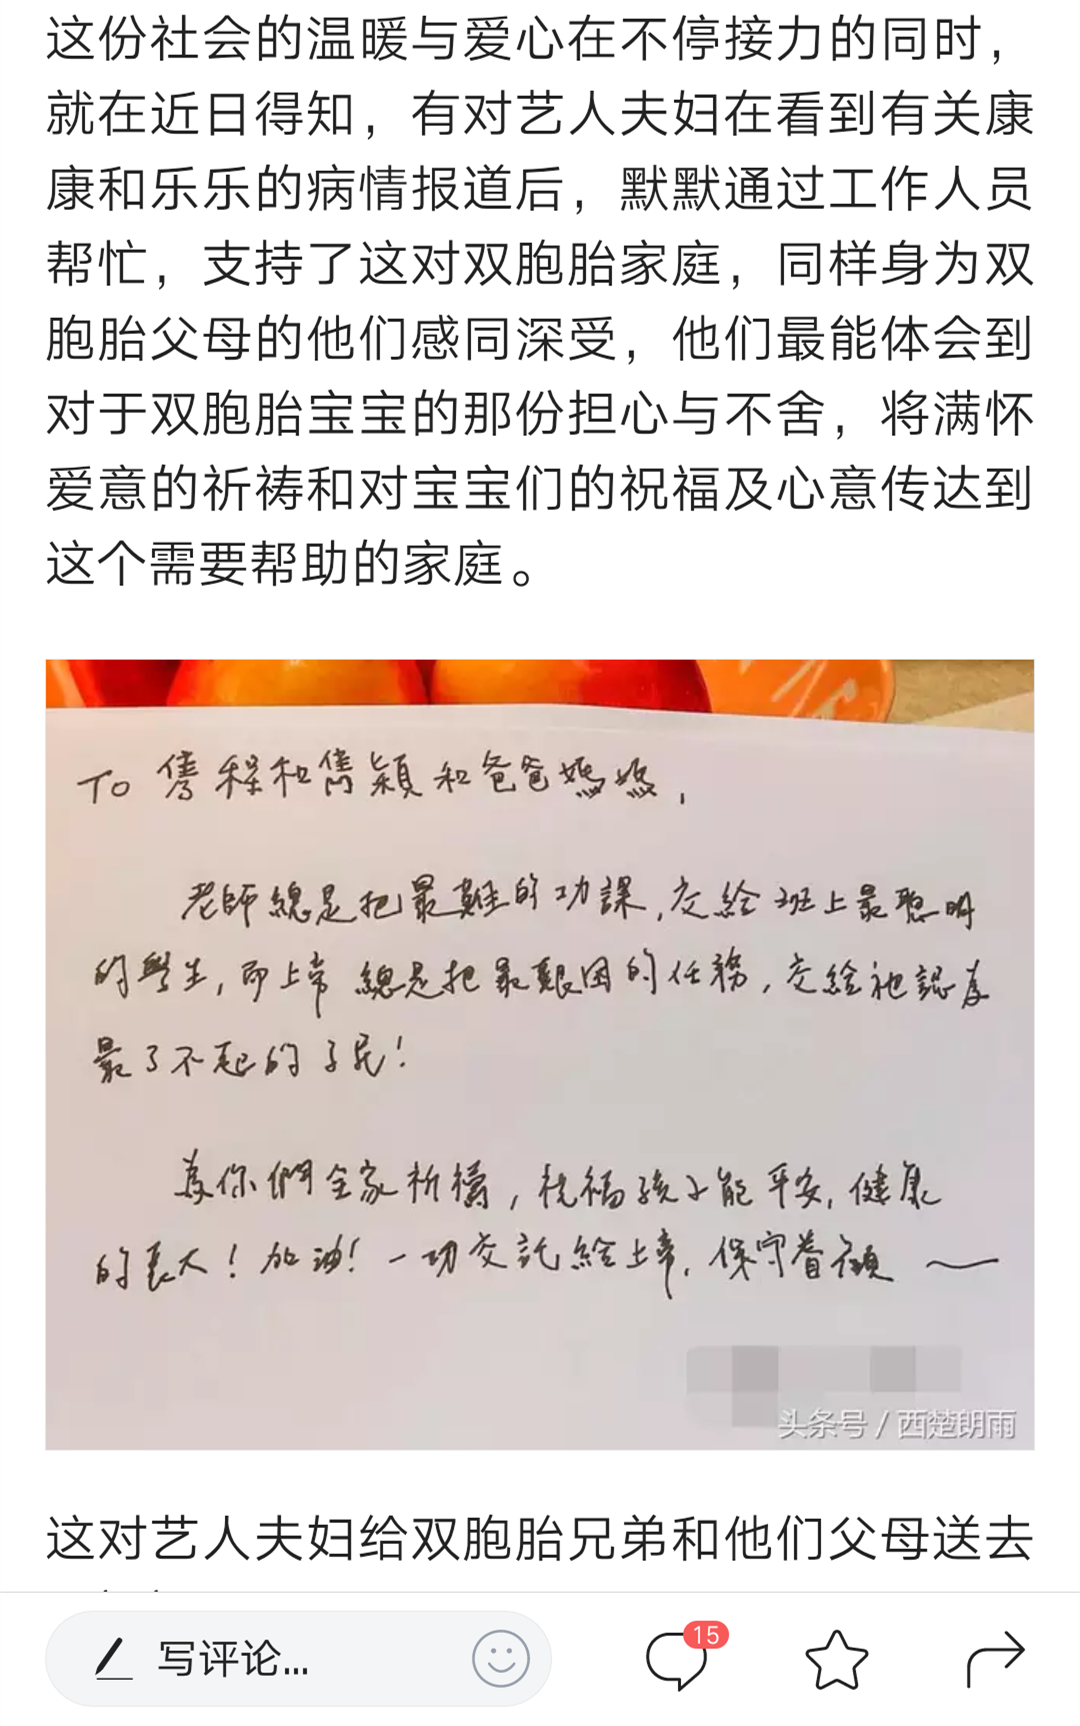 这份社会的温暖与爱心在不停接力的同时，
就在近日得知，有对艺人夫妇在看到有关康
康和乐乐的病情报道后，默默通过工作人员
帮忙，支持了这对双胞胎家庭，同样身为双
胞胎父母的他们感同深受，他们最能体会到
对于双胞胎宝宝的那份担心与不舍，将满怀
爱意的祈祷和对宝宝们的祝福及心意传达到
这个需要帮助的家庭。
TO 雋程和雋穎和爸爸媽媽，
老師總是把最難的功課，交給班上最聰明
的學生，而上帝總是把最艱困的任務，交給祂認為
最了不起的子民！
為你們全家祈禱，祝福孩子能平安，健康
的長大！加油！一切交託給上帝，保守眷顧～
头条号 / 西楚朗雨
这对艺人夫妇给双胞胎兄弟和他们父母送去
写评论...
15